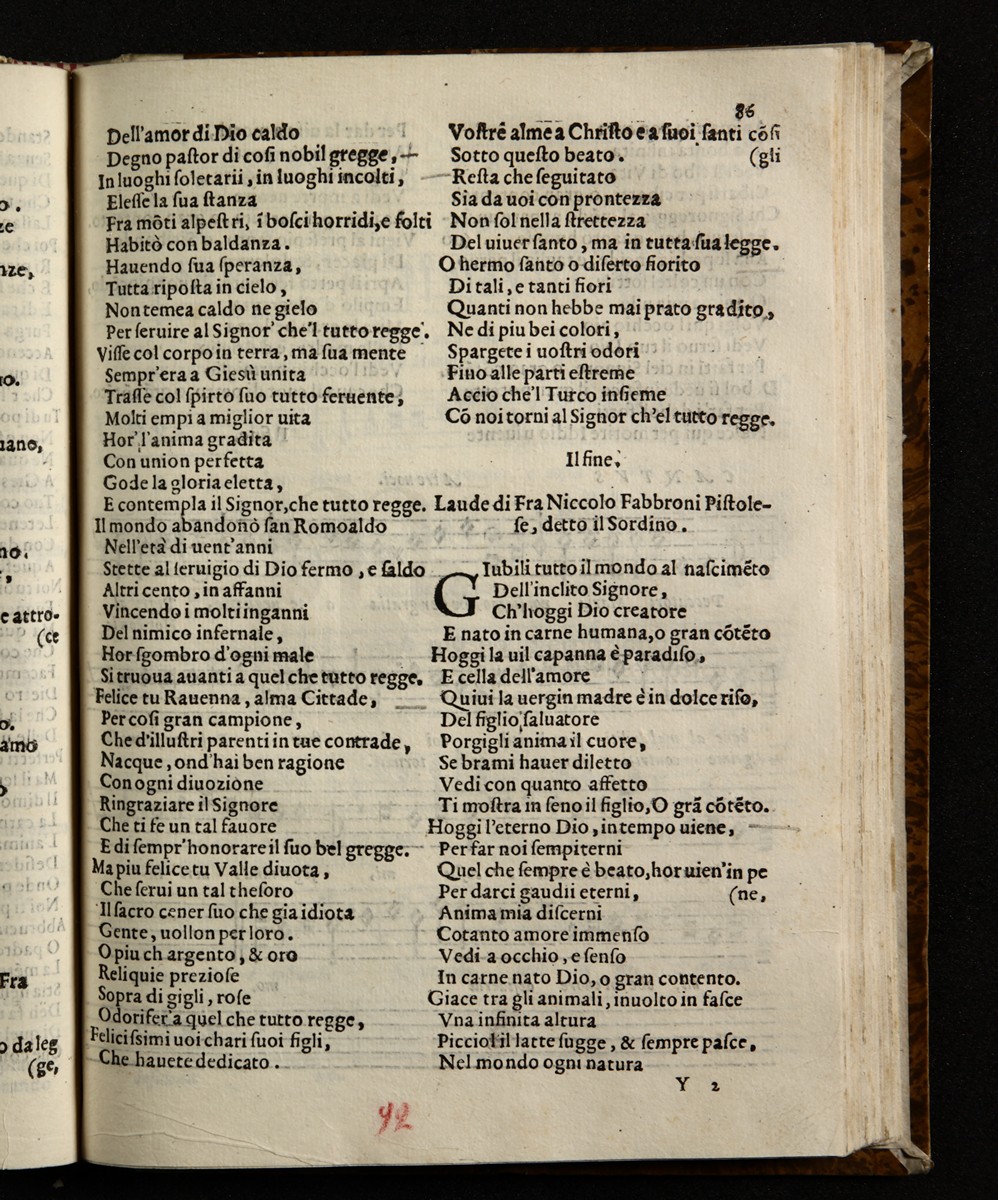 86
Dell'amor di Dio caldo
Degno paſtor di coſi nobil gregge,
In luoghi ſoletarii, in luoghi incolti,
Eleſſe la ſua ſtanza
Fra mōti alpeſtri, ī boſci horridi,e folti
Habitò con baldanza.
Hauendo ſua ſperanza,
Tutta ripoſta in cielo,
Non temea caldo ne gielo
Per ſeruire al Signor' che'l tutto regge.
Viſſe col corpo in terra, ma ſua mente
Sempr'era a Gieſù unita
Traſſe col ſpirto ſuo tutto feruente,
Molti empi a miglior uita
Hor' l'anima gradita
Con union perfetta
Gode la gloria eletta,
E contempla il Signor,che tutto regge.
Il mondo abandonò ſan Romoaldo
Nell'età di uent'anni
Stette al ſeruigio di Dio fermo, e ſaldo
Altri cento, in affanni
Vincendo i molti inganni
Del nimico infernale,
Hor ſgombro d'ogni male
Si truoua auanti a quel che tutto regge.
Felice tu Rauenna, alma Cittade,
Per coſi gran campione,
Che d'illuſtri parenti in tue contrade,
Nacque, ond'hai ben ragione
Con ogni diuozione
Ringraziare il Signore
Che ti fe un tal fauore
E di ſempr'honorare il ſuo bel gregge.
Ma piu felice tu Valle diuota,
Che ſerui un tal theſoro
Il ſacro cener ſuo che gia idiota
Gente, uollon per loro.
O piu ch argento, & oro
Reliquie prezioſe
Sopra di gigli, roſe
Odorifer'a quel che tutto regge,
Feliciſsimi uoi chari ſuoi figli,
Che hauete dedicato.
Voſtrē almē a Chriſto e a ſuoi ſanti cōſi
Sotto queſto beato. (gli
Reſta che ſeguitato
Sia da uoi con prontezza
Non ſol nella ſtrettezza
Del uiuer ſanto, ma in tutta ſua legge.
O hermo ſanto o diſerto fiorito
Di tali, e tanti fiori
Quanti non hebbe mai prato gradito,
Ne di piu bei colori,
Spargete i uoſtri odori
Fino alle parti eſtreme
Accio che'l Turco inſieme
Cō noi torni al Signor ch'el tutto regge.
Il fine.
Laude di Fra Niccolo Fabbroni Piſtole-
ſe, detto il Sordino.
GIubili tutto il mondo al naſcimēto
Dell'inclito Signore,
Ch'hoggi Dio creatore
E nato in carne humana,o gran cōtēto
Hoggi la uil capanna è paradiſo,
E cella dell'amore
Quiui la uergin madre è in dolce riſo,
Del figlio ſaluatore
Porgigli anima il cuore,
Se brami hauer diletto
Vedi con quanto affetto
Ti moſtra in ſeno il figlio,O grā cōtēto.
Hoggi l'eterno Dio, in tempo uiene,
Per far noi ſempiterni
Quel che ſempre è beato,hor uien'in pe
Per darci gaudii eterni, (ne,
Anima mia diſcerni
Cotanto amore immenſo
Vedi a occhio, e ſenſo
In carne nato Dio, o gran contento.
Giace tra gli animali, inuolto in faſce
Vna infinita altura
Picciol il latte ſugge, & ſempre paſce,
Nel mondo ogni natura
Y 2
92
o.
ze
nze,
no.
nano,
no.
e attro-
(ce
o.
amo
Fra
o da leg
(ge,